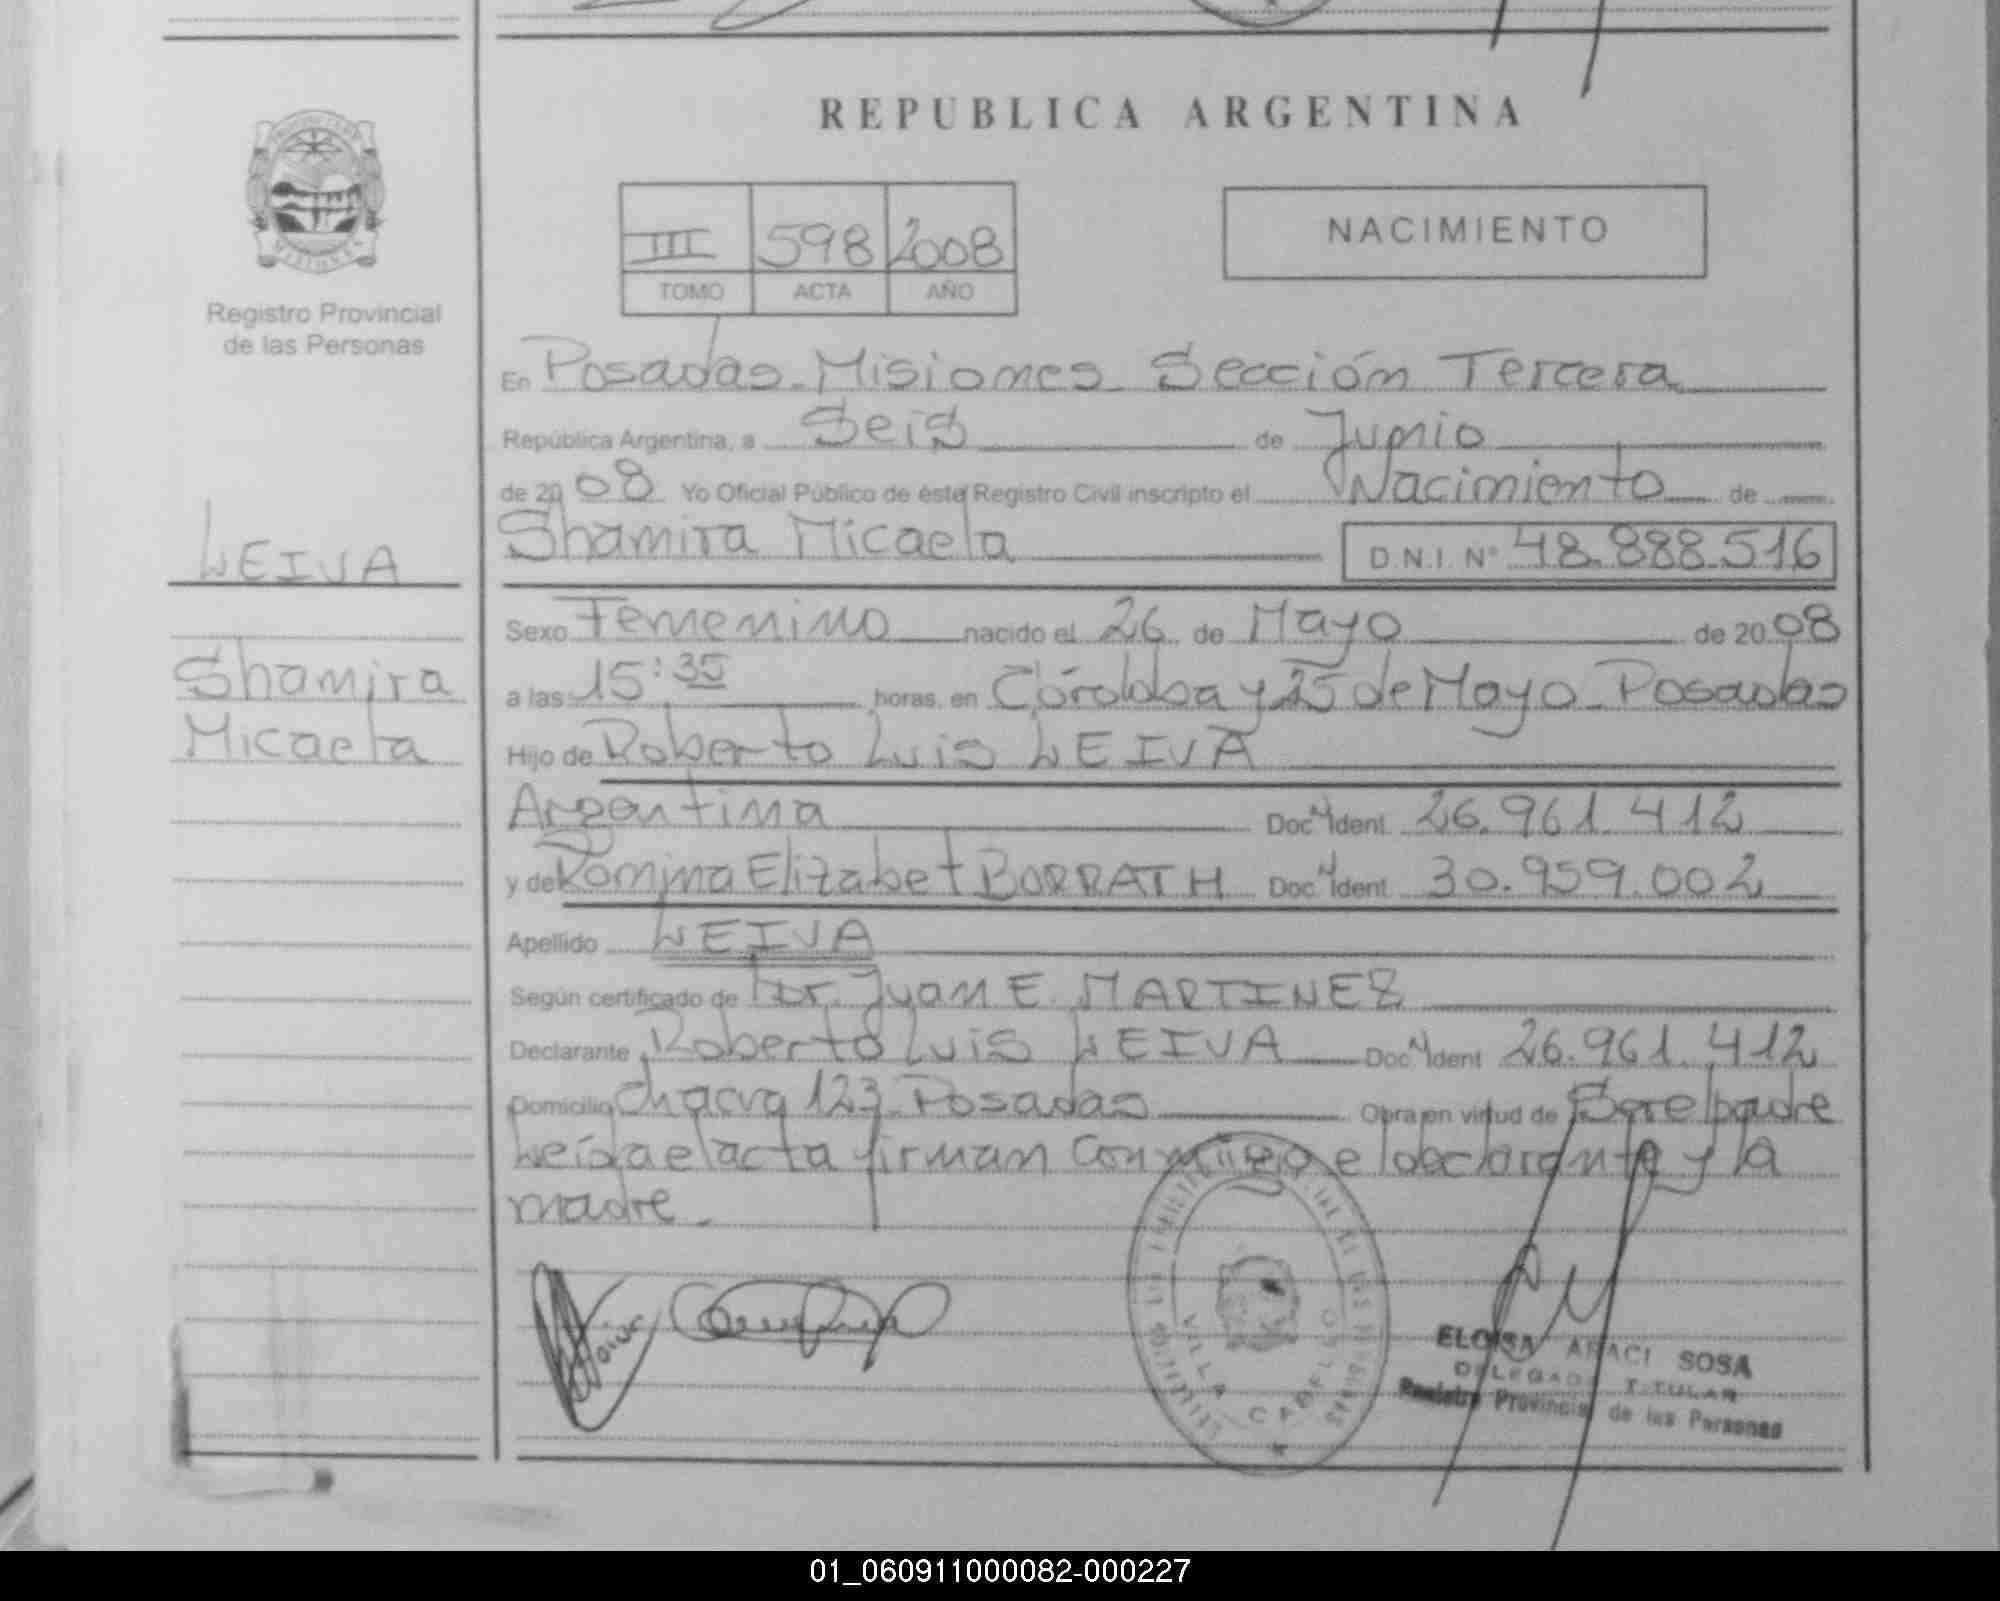 REPUBLICA ARGENTINA
III 598 2008
TOMO ACTA AÑO
NACIMIENTO
Registro Provincial
de las Personas
En Posadas - Misiones Sección Tercera
República Argentina, a Seis de Junio
de 2008 Yo Oficial Público de éste Registro Civil inscripto el Nacimiento de
Shamira Micaela D.N.I. N° 48.888.516
LEIVA
Shamira
Micaela
Sexo Femenino nacido el 26 de Mayo de 2008
a las 15:35 horas, en Córdoba y 25 de Mayo - Posadas
Hijo de Roberto Luis LEIVA
Argentina Doc. Ident. 26.961.412
y de Romina Elizabet BORRATH Doc. Ident. 30.959.002
Apellido LEIVA
Según certificado de Dr. Juan E. MARTINEZ
Declarante Roberto Luis LEIVA Doc. Ident. 26.961.412
Domicilio Chacra 123 - Posadas Obra en virtud de Ser el padre
Leída el acta firman Conmigo el declarante y la
madre.
VILLA CABELLO
ELOISA ARACI SOSA
DELEGADA TITULAR
Registro Provincial de las Personas
01_060911000082-000227